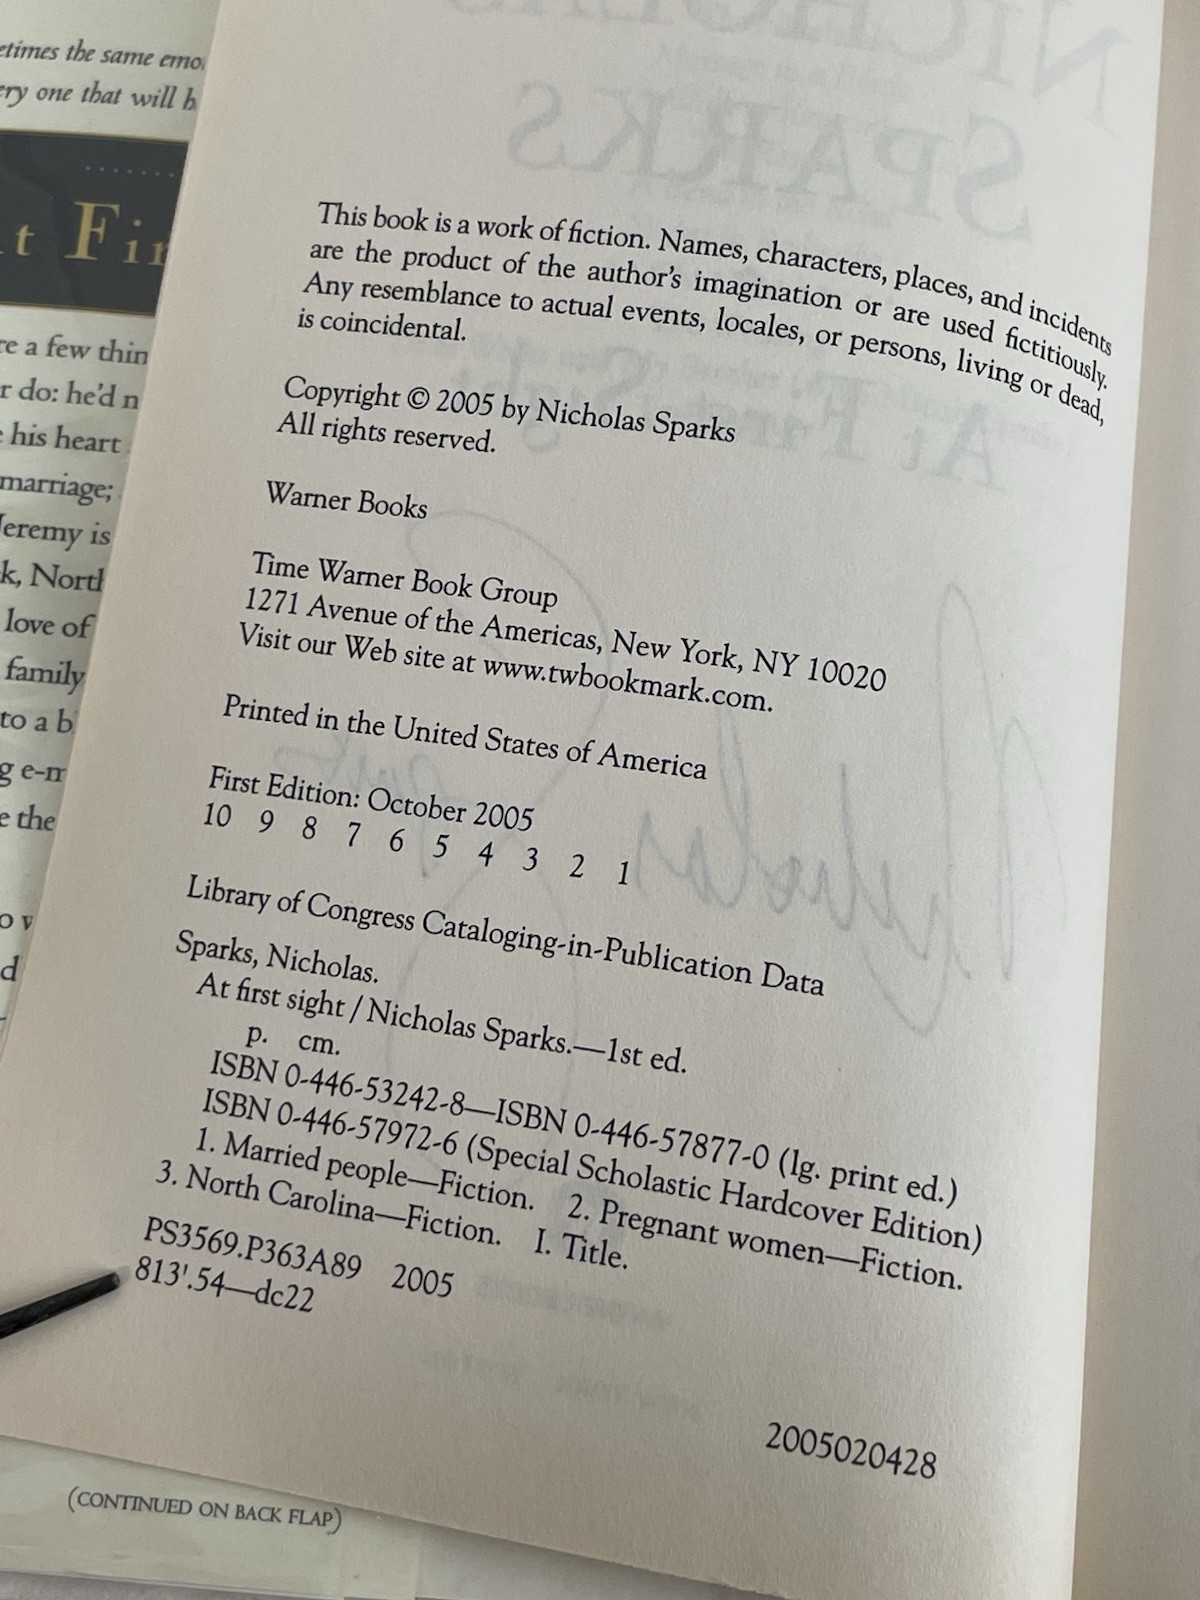 etimes the same emo
ery one that will h
t Fir
re a few thin
r do: he'd n
his heart
marriage;
Jeremy is
k, North
love of
family
to a b
g e-m
e the
o v
d
(CONTINUED ON BACK FLAP)
NICHOLAS
SPARKS
At First Sight
Nicholas Sparks
This book is a work of fiction. Names, characters, places, and incidents
are the product of the author's imagination or are used fictitiously.
Any resemblance to actual events, locales, or persons, living or dead,
is coincidental.
Copyright © 2005 by Nicholas Sparks
All rights reserved.
Warner Books
Time Warner Book Group
1271 Avenue of the Americas, New York, NY 10020
Visit our Web site at www.twbookmark.com.
Printed in the United States of America
First Edition: October 2005
10 9 8 7 6 5 4 3 2 1
Library of Congress Cataloging-in-Publication Data
Sparks, Nicholas.
At first sight / Nicholas Sparks.—1st ed.
p. cm.
ISBN 0-446-53242-8—ISBN 0-446-57877-0 (lg. print ed.)
ISBN 0-446-57972-6 (Special Scholastic Hardcover Edition)
1. Married people—Fiction. 2. Pregnant women—Fiction.
3. North Carolina—Fiction. I. Title.
PS3569.P363A89 2005
813'.54—dc22
2005020428